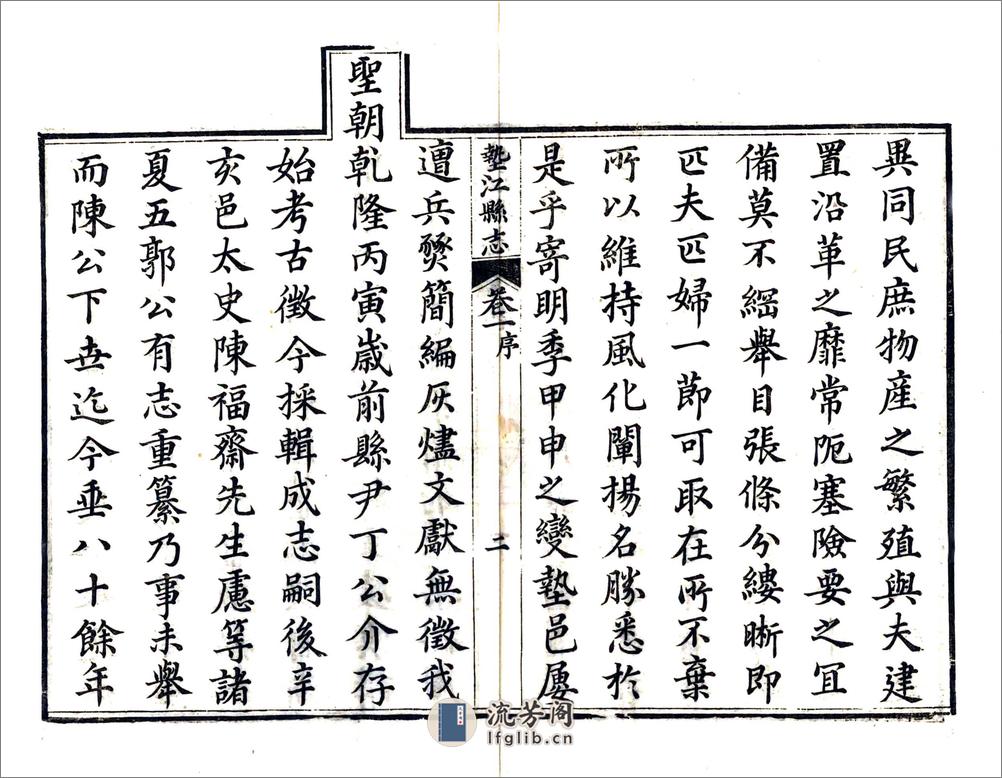 異同民庶物産之繁殖與夫建
置沿革之靡常阨塞險要之冝
備莫不綱舉目張條分縷晰即
匹夫匹婦一節可取在所不棄
所以維持風化闡揚名勝悉於
是乎寄明季甲申之變墊邑屢
墊江縣志
卷一序
二
遭兵燹簡編灰燼文獻無徵我
聖朝乾隆丙寅歲前縣尹丁公介存
始考古徵今採輯成志嗣後辛
亥邑太史陳福齋先生慮等諸
夏五郭公有志重纂乃事未舉
而陳公下世迄今垂八十餘年
流芳阁
lfglib.cn